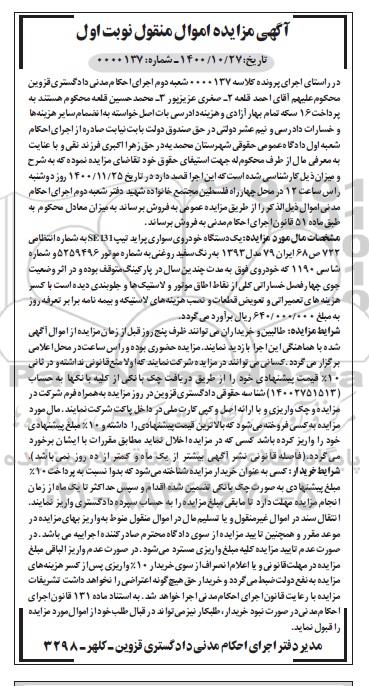 آگهی مزایده اموال منقول نوبت اول
تاریخ: ۱۴۰۰/۱۰/۲۷ - شماره: ۰۰۰۰۱۳۷
در راستای اجرای پرونده کلاسه ۰۰۰۰۱۳۷ شعبه دوم اجرای احکام مدنی دادگستری قزوین
محکوم علیهم آقای احمد قلعه ۲- صغری عزیزپور ۳- محمدحسین قلعه محکوم هستند به
پرداخت ۱۶ سکه تمام بهار آزادی و هزینه دادرسی بات اصل خواسته به انضمام سایر هزینه ها
و خسارات دادرسی و نیم عشر دولتی در حق صندوق دولت بابت نیابت صادره از اجرای احکام
شعبه اول دادگاه عمومی حقوقی شهرستان محمدیه در حق زهرا اکبری فرزند نقی و با عنایت
به معرفی مال از طرف محکوم له جهت استیفای حقوق خود تقاضای مزایده نموده که به شرح
و میزان ذیل کارشناسی شده است که این اجرا قصد دارد در تاریخ ۱۴۰۰/۱۱/۲۵ روز دوشنبه
راس ساعت ۱۲ در محل چهارراه فلسطین مجتمع خانواده شهید دفتر شعبه دوم اجرای احکام
مدنی اموال ذیل الذکر را از طریق مزایده عمومی به فروش برساند به میزان معادل محکوم به
طبق ماده ۵۱ قانون اجرای احکام مدنی به فروش برساند.
مشخصات مال مورد مزایده: یک دستگاه خودروی سواری پراید تیپ SE131 به شماره انتظامی
۷۲۲ ص ۶۸ ایران ۷۹ مدل ۱۳۹۳ به رنگ سفید روغنی به شماره موتور ۵۲۵۹۴۹۶ و شماره
شاسی ۱۱۹۰ که خودروی فوق به مدت چندین سال در پارکینگ متوقف بوده و در اثر وضعیت
جوی چهارفصل خساراتی کلی از نقاط اطاق موتور و لاستیک ها و جلوبندی دیده است با کسر
هزینه های تعمیراتی و تعویض قطعات و نصب هزینه های لاستیکه و بیمه نامه برابر تعرفه روز
به مبلغ ۶۴۰/۰۰۰/۰۰۰ ریال برآورد می گردد.
شرایط مزایده: طالبین و خریداران می توانند ظرف پنج روز قبل از زمان مزایده از اموال آگهی
شده با هماهنگی این اجرا بازدید نمایند. مزایده حضوری بوده و راس ساعت در محل اعلامی
برگزار می گردد. کسانی می توانند در مزایده شرکت نمایند که اولا منع قانونی نداشته و در ثانی
۱۰٪ قیمت پیشنهادی خود را از طریق دریافت چک بانکی از کلیه بانکها به حساب
(۱۴۰۰۲۷۵۱۵۱۳) شناسه حقوقی دادگستری قزوین در روز مزایده به همراه فرم شرکت در
مزایده و چک واریزی و با ارائه اصل و کپی کارت ملی در داخل پاکت شرکت نمایند. مال مورد
مزایده به کسی فروخته می شود که بالاترین قیمت پیشنهادی را داشته و ۱۰٪ مبلغ پیشنهادی
خود را واریز کرده باشد کسی که در مزایده اخلال نماید مطابق مقررات با ایشان برخورد
می گردد. (فاصله قانونی نشر آگهی بیشتر از یک ماه و کمتر از ده روز نمی باشد)
شرایط خریدار: کسی به عنوان خریدار مزایده شناخته می شود که بدوا نسبت به پرداخت ۱۰٪
مبلغ پیشنهادی به صورت چک بانکی تضمین شده اقدام و سپس حداکثر تا یک ماه از زمان
انجام مزایده مهلت دارد تا مابقی مبلغ مزایده را به حساب سپرده دادگستری واریز نمایند.
انتقال سند در اموال غیرمنقول و یا تسلیم مال در اموال منقول منوط به واریز بهای مزایده در
موعد مقرر و همچنین تایید مزایده از سوی دادگاه محترم صادرکننده اجرائیه می باشد. در
صورت عدم تایید مزایده کلیه مبلغ واریزی مسترد می شود. در صورت عدم واریز الباقی مبلغ
مزایده در مهلت قانونی و یا اعلام انصراف از سوی خریدار ۱۰٪ واریزی پس از کسر هزینه های
مزایده به نفع دولت ضبط می گردد و خریدار حق هیچ گونه اعتراضی را نخواهد داشت تشریفات
مزایده با رعایت قانون اجرای احکام مدنی اجرا خواهد شد. به استناد ماده ۱۳۱ قانون اجرای
احکام مدنی در صورت نبود خریدار، طلبکار نیز می تواند در قبال طلب خود از اموال مورد مزایده
را قبول نماید.
مدیر دفتر اجرای احکام مدنی دادگستری قزوین - کلهر - ۳۲۹۸